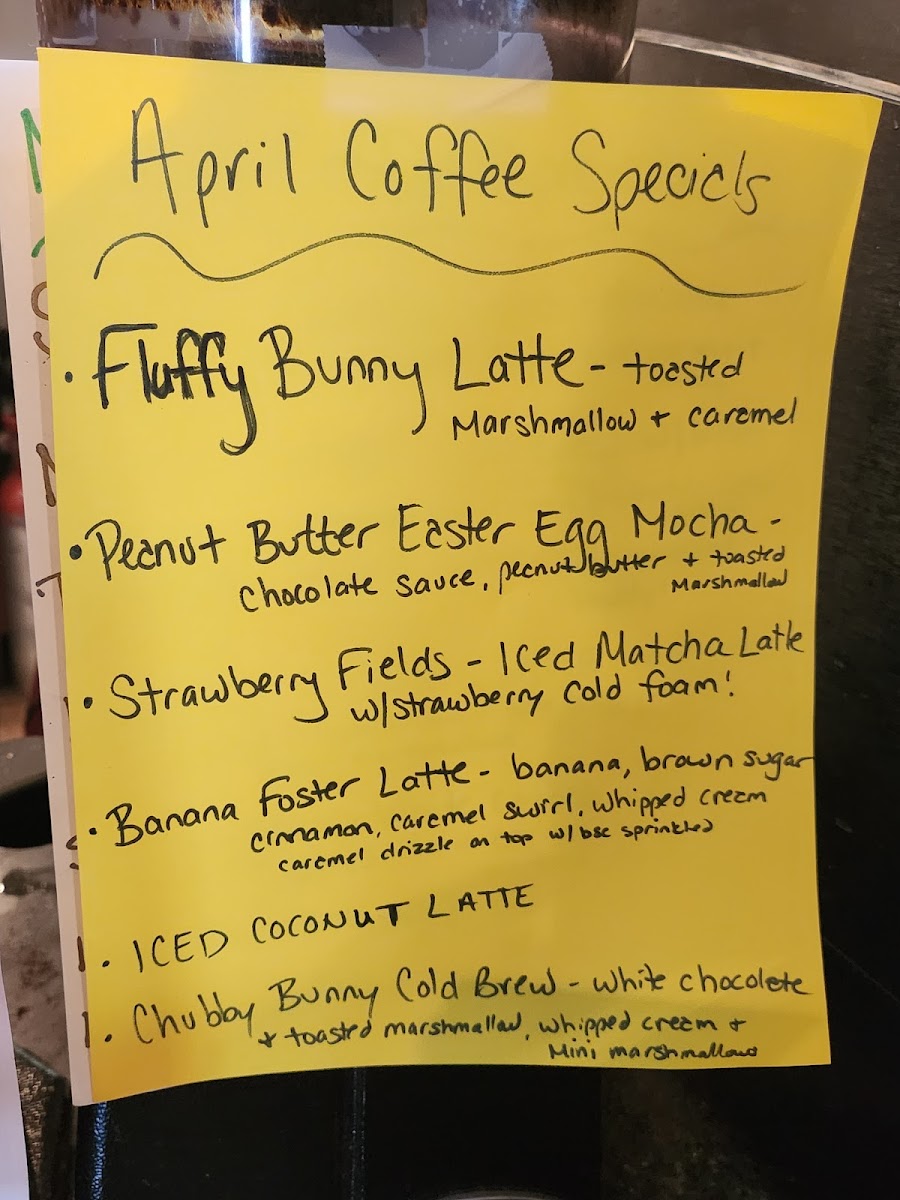 April Coffee Specials
• Fluffy Bunny Latte - toasted
Marshmallow + caramel
• Peanut Butter Easter Egg Mocha -
Chocolate sauce, peanut butter + toasted
Marshmallow
• Strawberry Fields - Iced Matcha Latte
w/strawberry cold foam!
• Banana Foster Latte - banana, brown sugar
cinnamon, caramel swirl, whipped cream
caramel drizzle on top w/ bsc sprinkled
• ICED COCONUT LATTE
• Chubby Bunny Cold Brew - white chocolate
+ toasted marshmallow, whipped cream +
Mini marshmallows